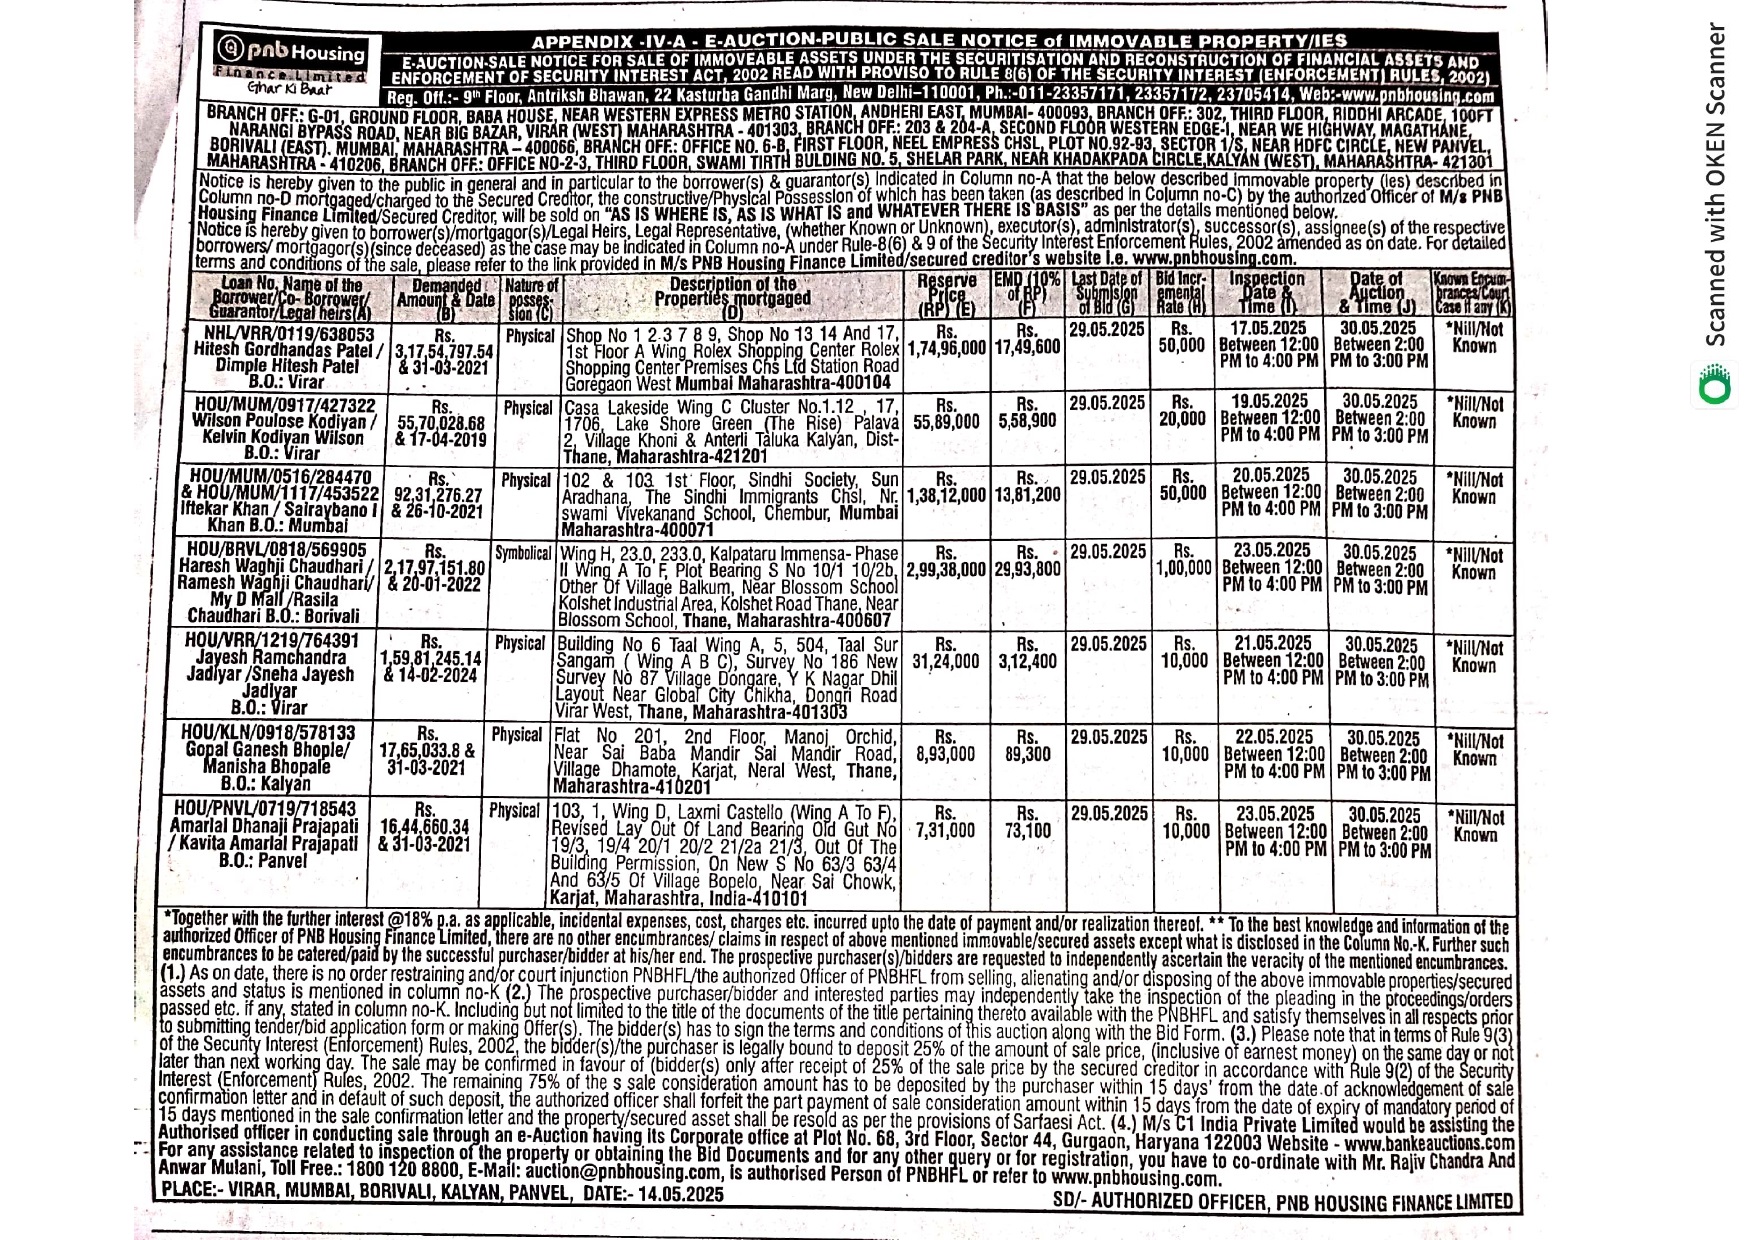 pnb Housing
Finance Limited
Ghar Ki Baat
APPENDIX -IV-A - E-AUCTION-PUBLIC SALE NOTICE of IMMOVABLE PROPERTY/IES
E-AUCTION-SALE NOTICE FOR SALE OF IMMOVEABLE ASSETS UNDER THE SECURITISATION AND RECONSTRUCTION OF FINANCIAL ASSETS AND
ENFORCEMENT OF SECURITY INTEREST ACT, 2002 READ WITH PROVISO TO RULE 8(6) OF THE SECURITY INTEREST (ENFORCEMENT) RULES, 2002)
Reg. Off.:- 9th Floor, Antriksh Bhawan, 22 Kasturba Gandhi Marg, New Delhi–110001, Ph.:-011-23357171, 23357172, 23705414, Web:-www.pnbhousing.com
BRANCH OFF.: G-01, GROUND FLOOR, BABA HOUSE, NEAR WESTERN EXPRESS METRO STATION, ANDHERI EAST, MUMBAI- 400093, BRANCH OFF.: 302, THIRD FLOOR, RIDDHI ARCADE, 100FT
NARANGI BYPASS ROAD, NEAR BIG BAZAR, VIRAR (WEST) MAHARASHTRA - 401303, BRANCH OFF.: 203 & 204-A, SECOND FLOOR WESTERN EDGE-I, NEAR WE HIGHWAY, MAGATHANE,
BORIVALI (EAST). MUMBAI, MAHARASHTRA – 400066, BRANCH OFF.: OFFICE NO. 6-B, FIRST FLOOR, NEEL EMPRESS CHSL, PLOT NO.92-93, SECTOR 1/S, NEAR HDFC CIRCLE, NEW PANVEL,
MAHARASHTRA - 410206, BRANCH OFF.: OFFICE NO-2-3, THIRD FLOOR, SWAMI TIRTH BULDING NO. 5, SHELAR PARK, NEAR KHADAKPADA CIRCLE,KALYAN (WEST), MAHARASHTRA- 421301
Notice is hereby given to the public in general and in particular to the borrower(s) & guarantor(s) indicated in Column no-A that the below described immovable property (ies) described in
Column no-D mortgaged/charged to the Secured Creditor, the constructive/Physical Possession of which has been taken (as described in Column no-C) by the authorized Officer of M/s PNB
Housing Finance Limited/Secured Creditor, will be sold on “AS IS WHERE IS, AS IS WHAT IS and WHATEVER THERE IS BASIS” as per the details mentioned below.
Notice is hereby given to borrower(s)/mortgagor(s)/Legal Heirs, Legal Representative, (whether Known or Unknown), executor(s), administrator(s), successor(s), assignee(s) of the respective
borrowers/ mortgagor(s)(since deceased) as the case may be indicated in Column no-A under Rule-8(6) & 9 of the Security Interest Enforcement Rules, 2002 amended as on date. For detailed
terms and conditions of the sale, please refer to the link provided in M/s PNB Housing Finance Limited/secured creditor's website i.e. www.pnbhousing.com.
Loan No, Name of the
Borrower/Co- Borrower/
Guarantor/Legal heirs(A)
Demanded
Amount & Date
(B)
Nature of
posses-
sion (C)
Description of the
Properties mortgaged
(D)
Reserve
Price
(RP) (E)
EMD (10%
of RP)
(F)
Last Date of
Submision
of Bid (G)
Bid Incr-
emental
Rate (H)
Inspection
Date &
Time (I)
Date of
Auction
& Time (J)
Known Encum-
brances/Court
Case if any (K)
NHL/VRR/0119/638053
Hitesh Gordhandas Patel /
Dimple Hitesh Patel
B.O.: Virar
Rs.
3,17,54,797.54
& 31-03-2021
Physical
Shop No 1 2 3 7 8 9, Shop No 13 14 And 17,
1st Floor A Wing Rolex Shopping Center Rolex
Shopping Center Premises Chs Ltd Station Road
Goregaon West Mumbai Maharashtra-400104
Rs.
1,74,96,000
Rs.
17,49,600
29.05.2025
Rs.
50,000
17.05.2025
Between 12:00
PM to 4:00 PM
30.05.2025
Between 2:00
PM to 3:00 PM
*Nill/Not
Known
HOU/MUM/0917/427322
Wilson Poulose Kodiyan /
Kelvin Kodiyan Wilson
B.O.: Virar
Rs.
55,70,028.68
& 17-04-2019
Physical
Casa Lakeside Wing C Cluster No.1.12 , 17,
1706, Lake Shore Green (The Rise) Palava
2, Village Khoni & Anterli Taluka Kalyan, Dist-
Thane, Maharashtra-421201
Rs.
55,89,000
Rs.
5,58,900
29.05.2025
Rs.
20,000
19.05.2025
Between 12:00
PM to 4:00 PM
30.05.2025
Between 2:00
PM to 3:00 PM
*Nill/Not
Known
HOU/MUM/0516/284470
& HOU/MUM/1117/453522
Iftekar Khan / Sairaybano I
Khan B.O.: Mumbai
Rs.
92,31,276.27
& 26-10-2021
Physical
102 & 103 1st Floor, Sindhi Society, Sun
Aradhana, The Sindhi Immigrants Chsl, Nr.
swami Vivekanand School, Chembur, Mumbai
Maharashtra-400071
Rs.
1,38,12,000
Rs.
13,81,200
29.05.2025
Rs.
50,000
20.05.2025
Between 12:00
PM to 4:00 PM
30.05.2025
Between 2:00
PM to 3:00 PM
*Nill/Not
Known
HOU/BRVL/0818/569905
Haresh Waghji Chaudhari /
Ramesh Waghji Chaudhari/
My D Mall /Rasila
Chaudhari B.O.: Borivali
Rs.
2,17,97,151.80
& 20-01-2022
Symbolical
Wing H, 23.0, 233.0, Kalpataru Immensa- Phase
II Wing A To F, Plot Bearing S No 10/1 10/2b,
Other Of Village Balkum, Near Blossom School
Kolshet Industrial Area, Kolshet Road Thane, Near
Blossom School, Thane, Maharashtra-400607
Rs.
2,99,38,000
Rs.
29,93,800
29.05.2025
Rs.
1,00,000
23.05.2025
Between 12:00
PM to 4:00 PM
30.05.2025
Between 2:00
PM to 3:00 PM
*Nill/Not
Known
HOU/VRR/1219/764391
Jayesh Ramchandra
Jadiyar /Sneha Jayesh
Jadiyar
B.O.: Virar
Rs.
1,59,81,245.14
& 14-02-2024
Physical
Building No 6 Taal Wing A, 5, 504, Taal Sur
Sangam ( Wing A B C), Survey No 186 New
Survey No 87 Village Dongare, Y K Nagar Dhil
Layout Near Global City Chikha, Dongri Road
Virar West, Thane, Maharashtra-401303
Rs.
31,24,000
Rs.
3,12,400
29.05.2025
Rs.
10,000
21.05.2025
Between 12:00
PM to 4:00 PM
30.05.2025
Between 2:00
PM to 3:00 PM
*Nill/Not
Known
HOU/KLN/0918/578133
Gopal Ganesh Bhople/
Manisha Bhopale
B.O.: Kalyan
Rs.
17,65,033.8 &
31-03-2021
Physical
Flat No 201, 2nd Floor, Manoj Orchid,
Near Sai Baba Mandir Sai Mandir Road,
Village Dhamote, Karjat, Neral West, Thane,
Maharashtra-410201
Rs.
8,93,000
Rs.
89,300
29.05.2025
Rs.
10,000
22.05.2025
Between 12:00
PM to 4:00 PM
30.05.2025
Between 2:00
PM to 3:00 PM
*Nill/Not
Known
HOU/PNVL/0719/718543
Amarlal Dhanaji Prajapati
/ Kavita Amarlal Prajapati
B.O.: Panvel
Rs.
16,44,660.34
& 31-03-2021
Physical
103, 1, Wing D, Laxmi Castello (Wing A To F),
Revised Lay Out Of Land Bearing Old Gut No
19/3, 19/4 20/1 20/2 21/2a 21/3, Out Of The
Building Permission, On New S No 63/3 63/4
And 63/5 Of Village Bopelo, Near Sai Chowk,
Karjat, Maharashtra, India-410101
Rs.
7,31,000
Rs.
73,100
29.05.2025
Rs.
10,000
23.05.2025
Between 12:00
PM to 4:00 PM
30.05.2025
Between 2:00
PM to 3:00 PM
*Nill/Not
Known
*Together with the further interest @18% p.a. as applicable, incidental expenses, cost, charges etc. incurred upto the date of payment and/or realization thereof. ** To the best knowledge and information of the
authorized Officer of PNB Housing Finance Limited, there are no other encumbrances/ claims in respect of above mentioned immovable/secured assets except what is disclosed in the Column No.-K. Further such
encumbrances to be catered/paid by the successful purchaser/bidder at his/her end. The prospective purchaser(s)/bidders are requested to independently ascertain the veracity of the mentioned encumbrances.
(1.) As on date, there is no order restraining and/or court injunction PNBHFL/the authorized Officer of PNBHFL from selling, alienating and/or disposing of the above immovable properties/secured
assets and status is mentioned in column no-K (2.) The prospective purchaser/bidder and interested parties may independently take the inspection of the pleading in the proceedings/orders
passed etc. if any, stated in column no-K. Including but not limited to the title of the documents of the title pertaining thereto available with the PNBHFL and satisfy themselves in all respects prior
to submitting tender/bid application form or making Offer(s). The bidder(s) has to sign the terms and conditions of this auction along with the Bid Form. (3.) Please note that in terms of Rule 9(3)
of the Security Interest (Enforcement) Rules, 2002, the bidder(s)/the purchaser is legally bound to deposit 25% of the amount of sale price, (inclusive of earnest money) on the same day or not
later than next working day. The sale may be confirmed in favour of (bidder(s) only after receipt of 25% of the sale price by the secured creditor in accordance with Rule 9(2) of the Security
Interest (Enforcement) Rules, 2002. The remaining 75% of the s sale consideration amount has to be deposited by the purchaser within 15 days' from the date of acknowledgement of sale
confirmation letter and in default of such deposit, the authorized officer shall forfeit the part payment of sale consideration amount within 15 days from the date of expiry of mandatory period of
15 days mentioned in the sale confirmation letter and the property/secured asset shall be resold as per the provisions of Sarfaesi Act. (4.) M/s C1 India Private Limited would be assisting the
Authorised officer in conducting sale through an e-Auction having its Corporate office at Plot No. 68, 3rd Floor, Sector 44, Gurgaon, Haryana 122003 Website - www.bankeauctions.com
For any assistance related to inspection of the property or obtaining the Bid Documents and for any other query or for registration, you have to co-ordinate with Mr. Rajiv Chandra And
Anwar Mulani, Toll Free.: 1800 120 8800, E-Mail: auction@pnbhousing.com, is authorised Person of PNBHFL or refer to www.pnbhousing.com.
PLACE:- VIRAR, MUMBAI, BORIVALI, KALYAN, PANVEL, DATE:- 14.05.2025
SD/- AUTHORIZED OFFICER, PNB HOUSING FINANCE LIMITED
Scanned with OKEN Scanner